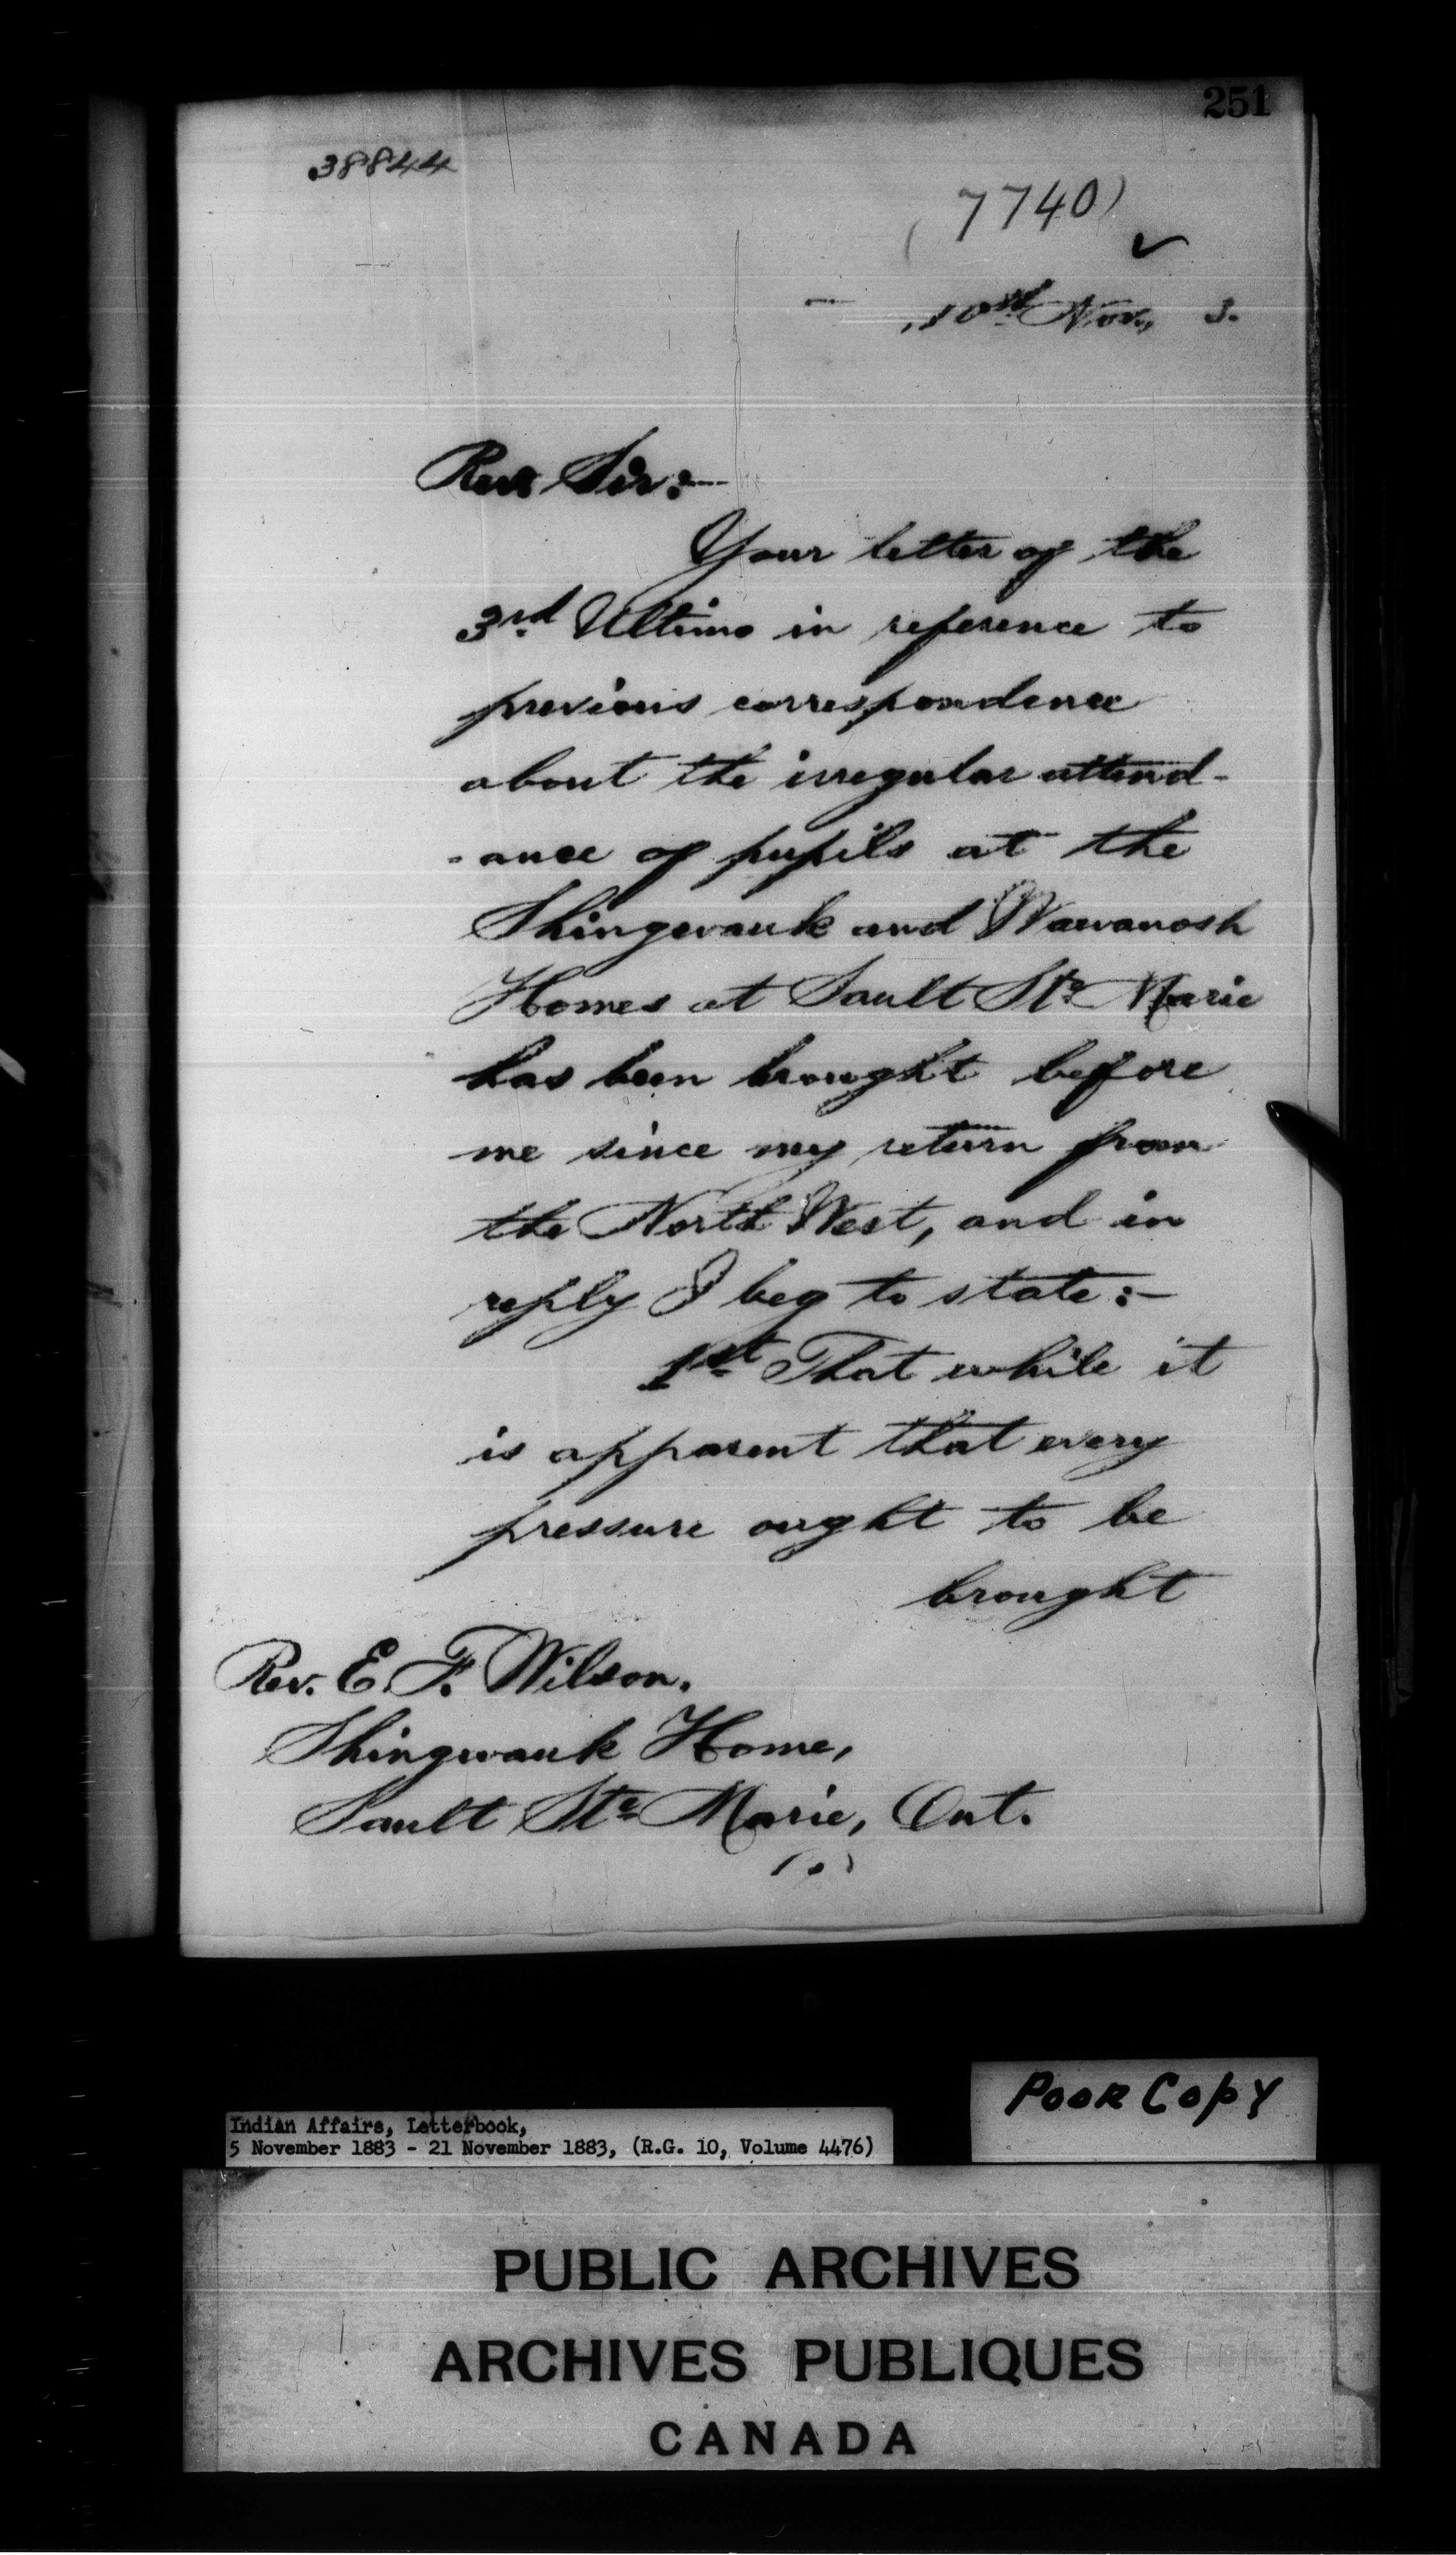 251
38844
(7740)
10th Nov, 3.
Rev. Sir:—
Your letter of the
3rd Ultimo in reference to
previous correspondence
about the irregular attend-
-ance of pupils at the
Shingwauk and Wawanosh
Homes at Sault Ste Marie
has been brought before
me since my return from
the North West, and in
reply I beg to state:—
1st That while it
is apparent that every
pressure ought to be
brought
Rev. E. F. Wilson.
Shingwauk Home,
Sault Ste Marie, Ont.
POOR COPY
Indian Affairs, Letterbook,
5 November 1883 - 21 November 1883, (R.G. 10, Volume 4476)
PUBLIC ARCHIVES
ARCHIVES PUBLIQUES
CANADA